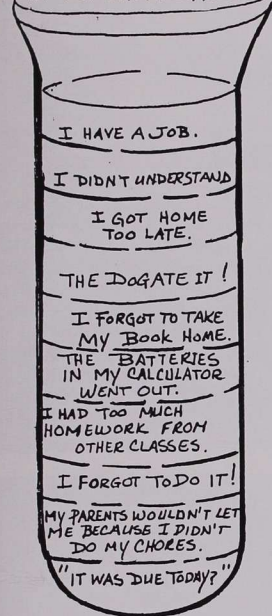 I HAVE A JOB.
I DIDN'T UNDERSTAND
I GOT HOME
TOO LATE.
THE DOG ATE IT!
I FORGOT TO TAKE
MY BOOK HOME.
THE BATTERIES
IN MY CALCULATOR
WENT OUT.
I HAD TOO MUCH
HOMEWORK FROM
OTHER CLASSES.
I FORGOT TO DO IT!
MY PARENTS WOULDN'T LET
ME BECAUSE I DIDN'T
DO MY CHORES.
"IT WAS DUE TODAY?"